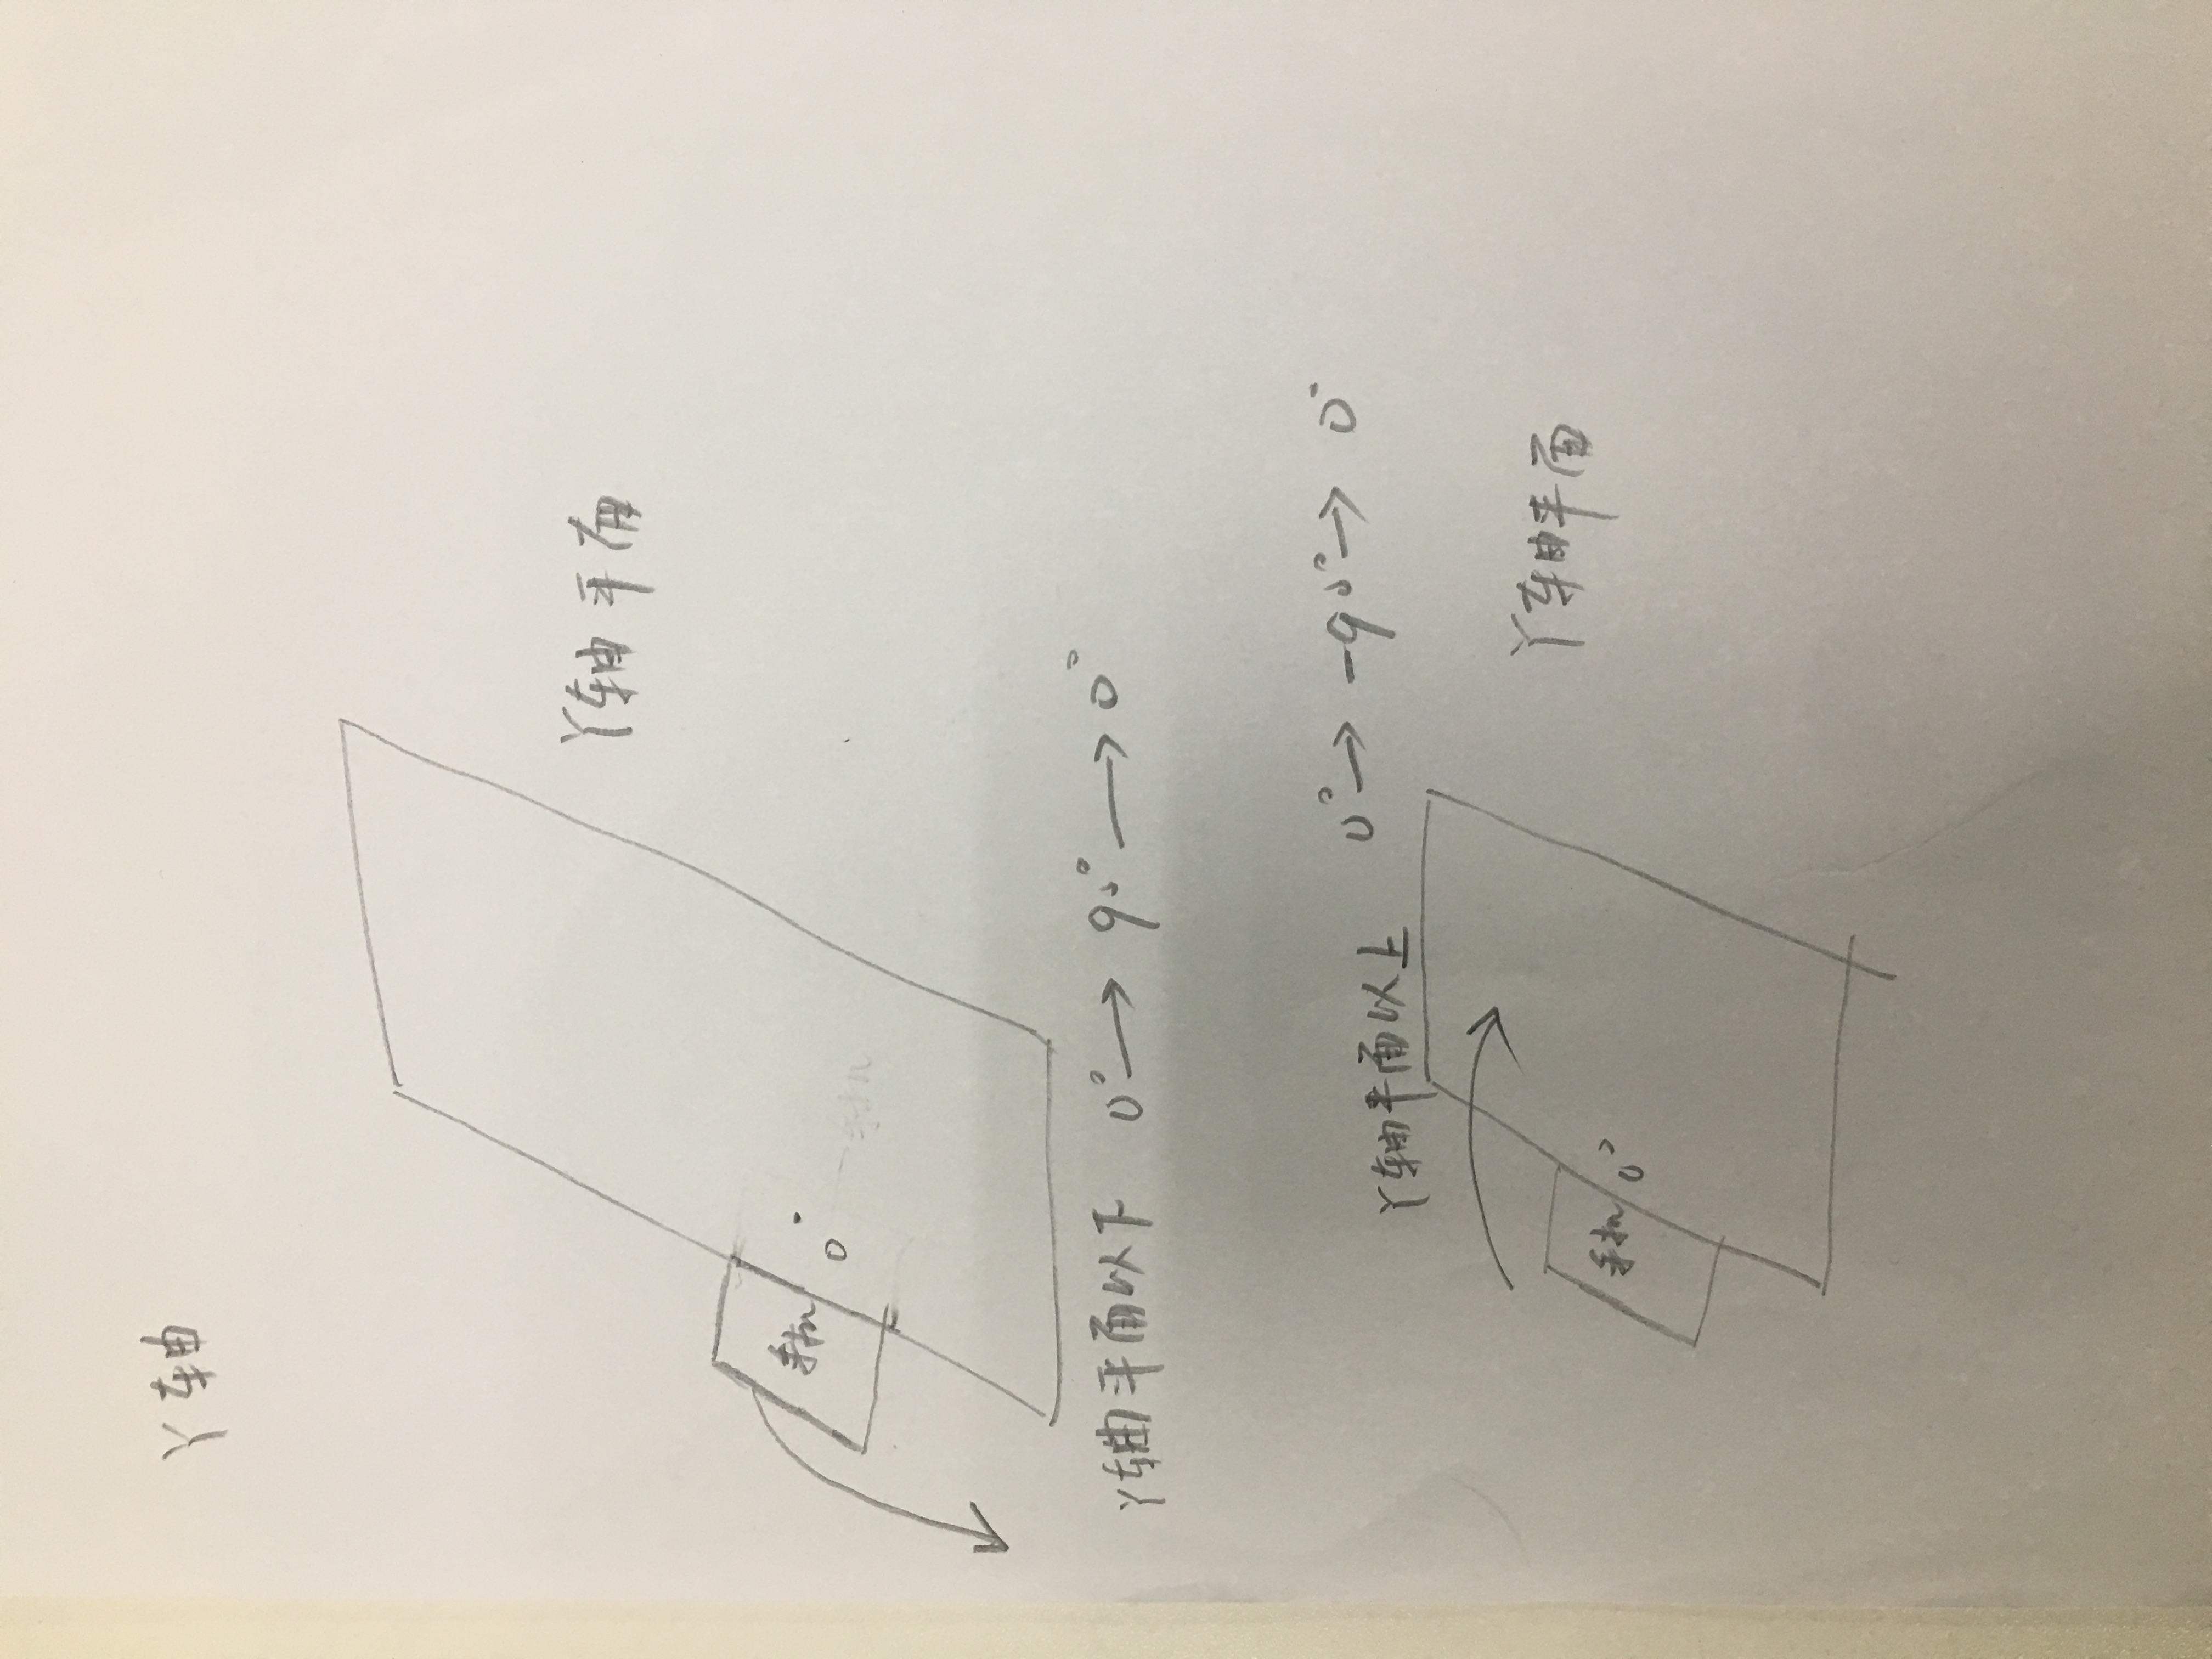 Y轴
Y轴平面
手机
0°
Y轴平面以下 0°→90°→0°
0°→-90°→0°
Y轴平面以上
Y轴平面
手机 0°